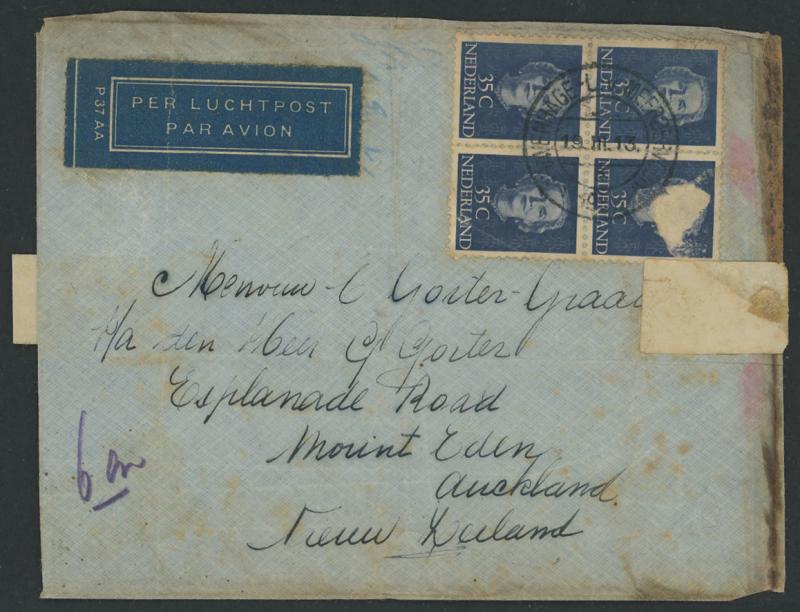 PER LUCHTPOST
PAR AVION
P.37 AA
35 C
NEDERLAND
35 C
NEDERLAND
35 C
NEDERLAND
35 C
NEDERLAND
19.III.13.
Mevrouw C Gorter-Graaf
H/a den Heer G Gorter
Esplanade Road
Mount Eden
Auckland
Nieuw Zeeland
6